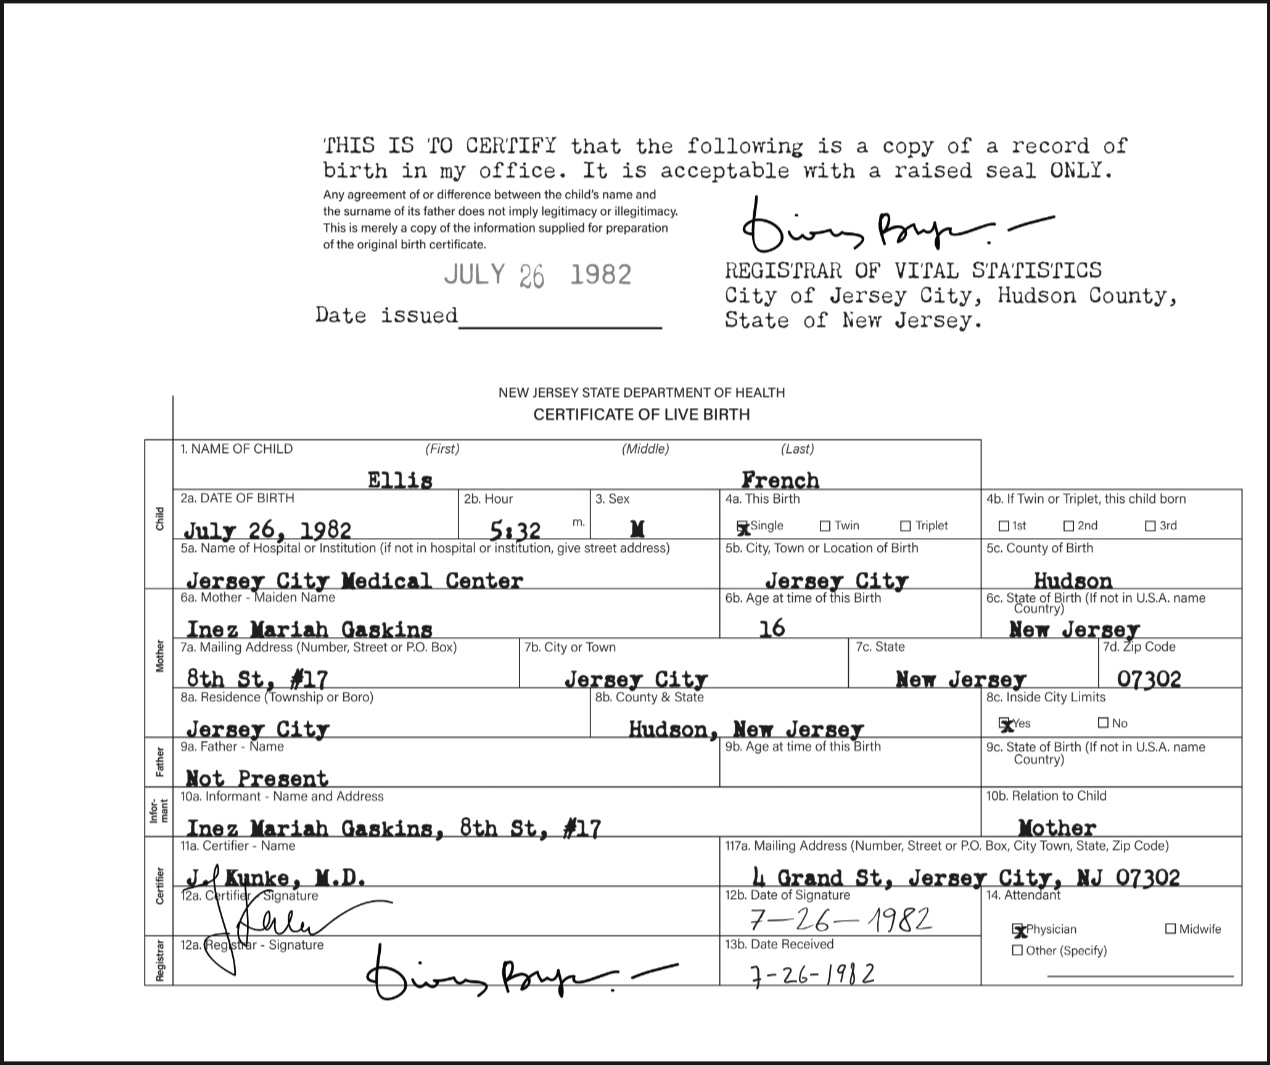 THIS IS TO CERTIFY that the following is a copy of a record of
birth in my office. It is acceptable with a raised seal ONLY.
Any agreement of or difference between the child's name and
the surname of its father does not imply legitimacy or illegitimacy.
This is merely a copy of the information supplied for preparation
of the original birth certificate.
JULY 26 1982
Date issued
REGISTRAR OF VITAL STATISTICS
City of Jersey City, Hudson County,
State of New Jersey.
NEW JERSEY STATE DEPARTMENT OF HEALTH
CERTIFICATE OF LIVE BIRTH
Child
1. NAME OF CHILD (First) (Middle) (Last)
Ellis French
2a. DATE OF BIRTH 2b. Hour 3. Sex 4a. This Birth 4b. If Twin or Triplet, this child born
July 26, 1982 5:32 m. M Single Twin Triplet 1st 2nd 3rd
5a. Name of Hospital or Institution (if not in hospital or institution, give street address) 5b. City, Town or Location of Birth 5c. County of Birth
Jersey City Medical Center Jersey City Hudson
Mother
6a. Mother - Maiden Name 6b. Age at time of this Birth 6c. State of Birth (If not in U.S.A. name
Country)
Inez Mariah Gaskins 16 New Jersey
7a. Mailing Address (Number, Street or P.O. Box) 7b. City or Town 7c. State 7d. Zip Code
8th St, #17 Jersey City New Jersey 07302
8a. Residence (Township or Boro) 8b. County & State 8c. Inside City Limits
Jersey City Hudson, New Jersey Yes No
Father
9a. Father - Name 9b. Age at time of this Birth 9c. State of Birth (If not in U.S.A. name
Country)
Not Present
Infor-
mant
10a. Informant - Name and Address 10b. Relation to Child
Inez Mariah Gaskins, 8th St, #17 Mother
Certifier
11a. Certifier - Name 117a. Mailing Address (Number, Street or P.O. Box, City Town, State, Zip Code)
Kunke, M.D. 4 Grand St, Jersey City, NJ 07302
12a. Certifier Signature 12b. Date of Signature 14. Attendant
7-26-1982 Physician Midwife
Other (Specify)
Registrar
12a. Registrar - Signature 13b. Date Received
7-26-1982